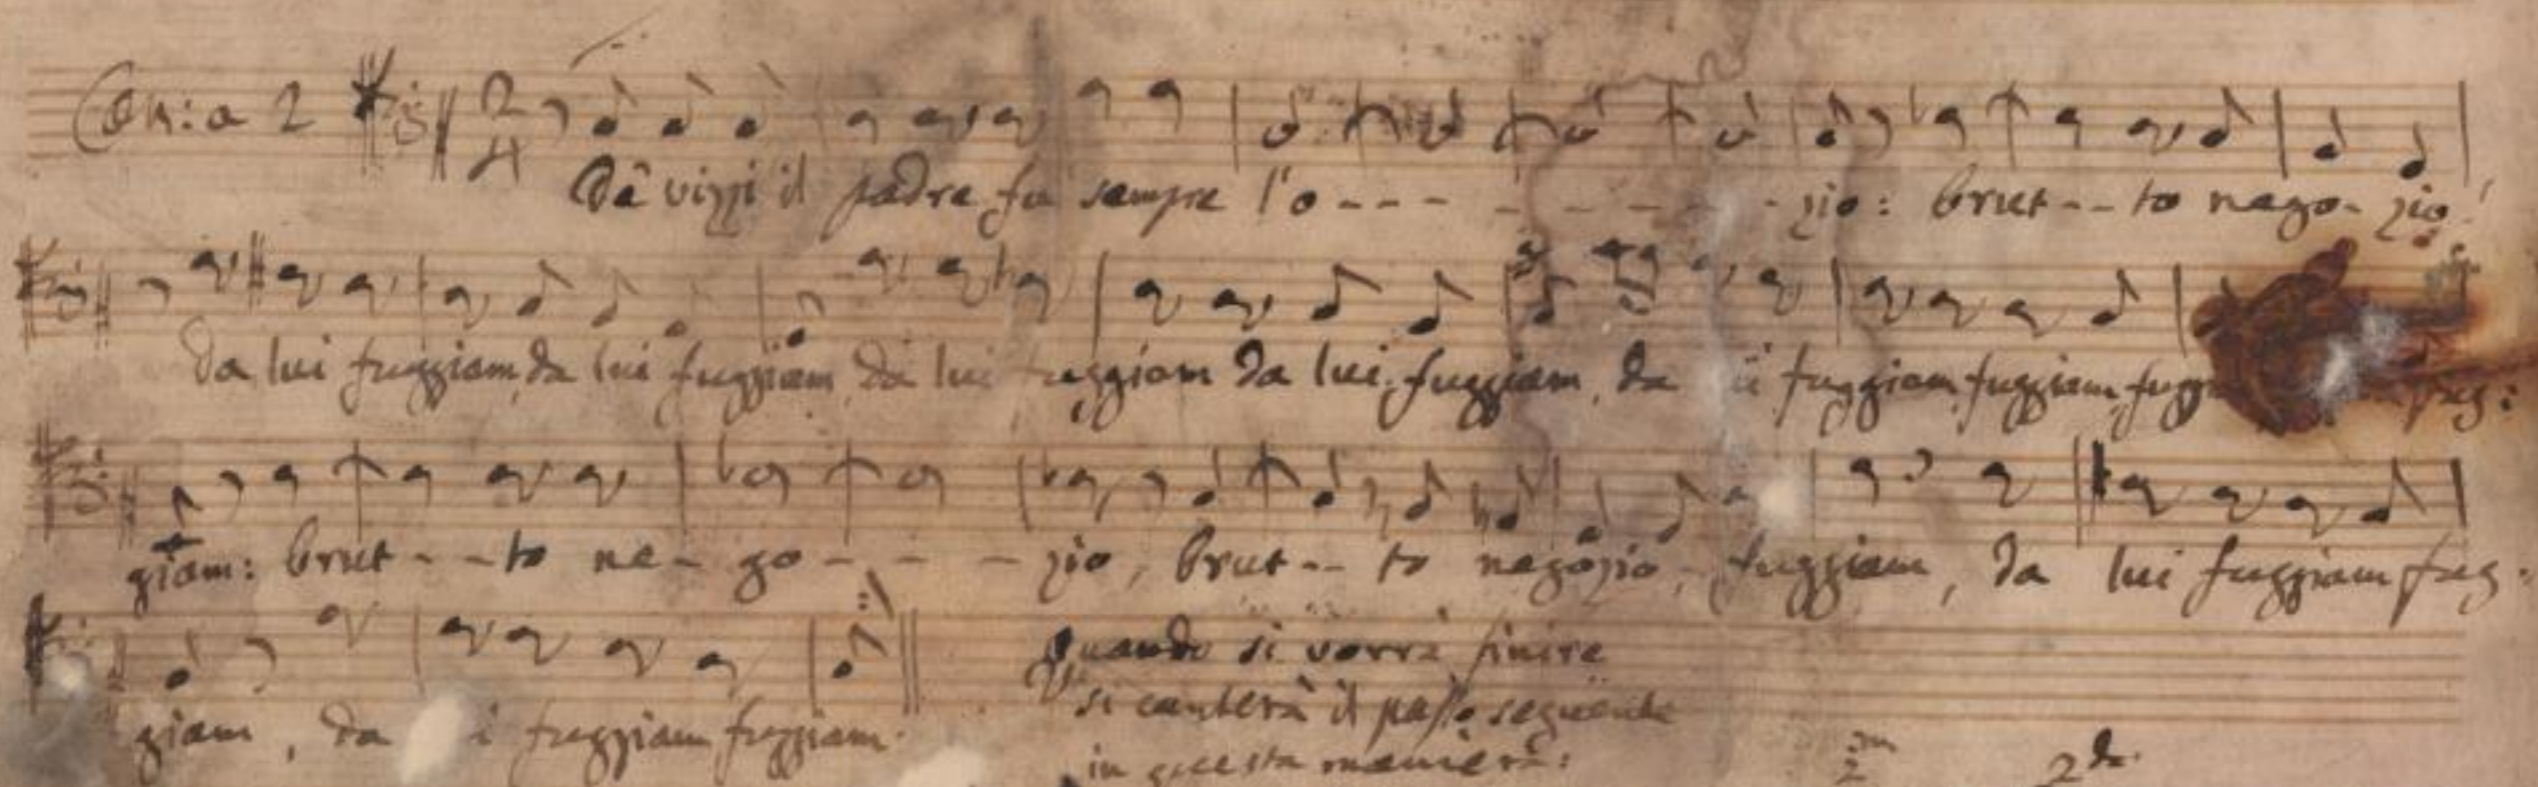 Can: a 2
2/4
De vizzi il padre fu sempre l'o - - - - - - - - zio: brut - - to nego - zio
da lui fuggiam, da lui fuggiam, da lui fuggiam da lui, fuggiam, da fuggiam, fuggiam, fug:
giam: brut - - to ne - go - - - zio, brut - - to negozio, fuggiam, da lui fuggiam fug:
giam, da fuggiam fuggiam.
Quando si vorrà finire
si canterà il passo seguente
in questa maniera:
2da